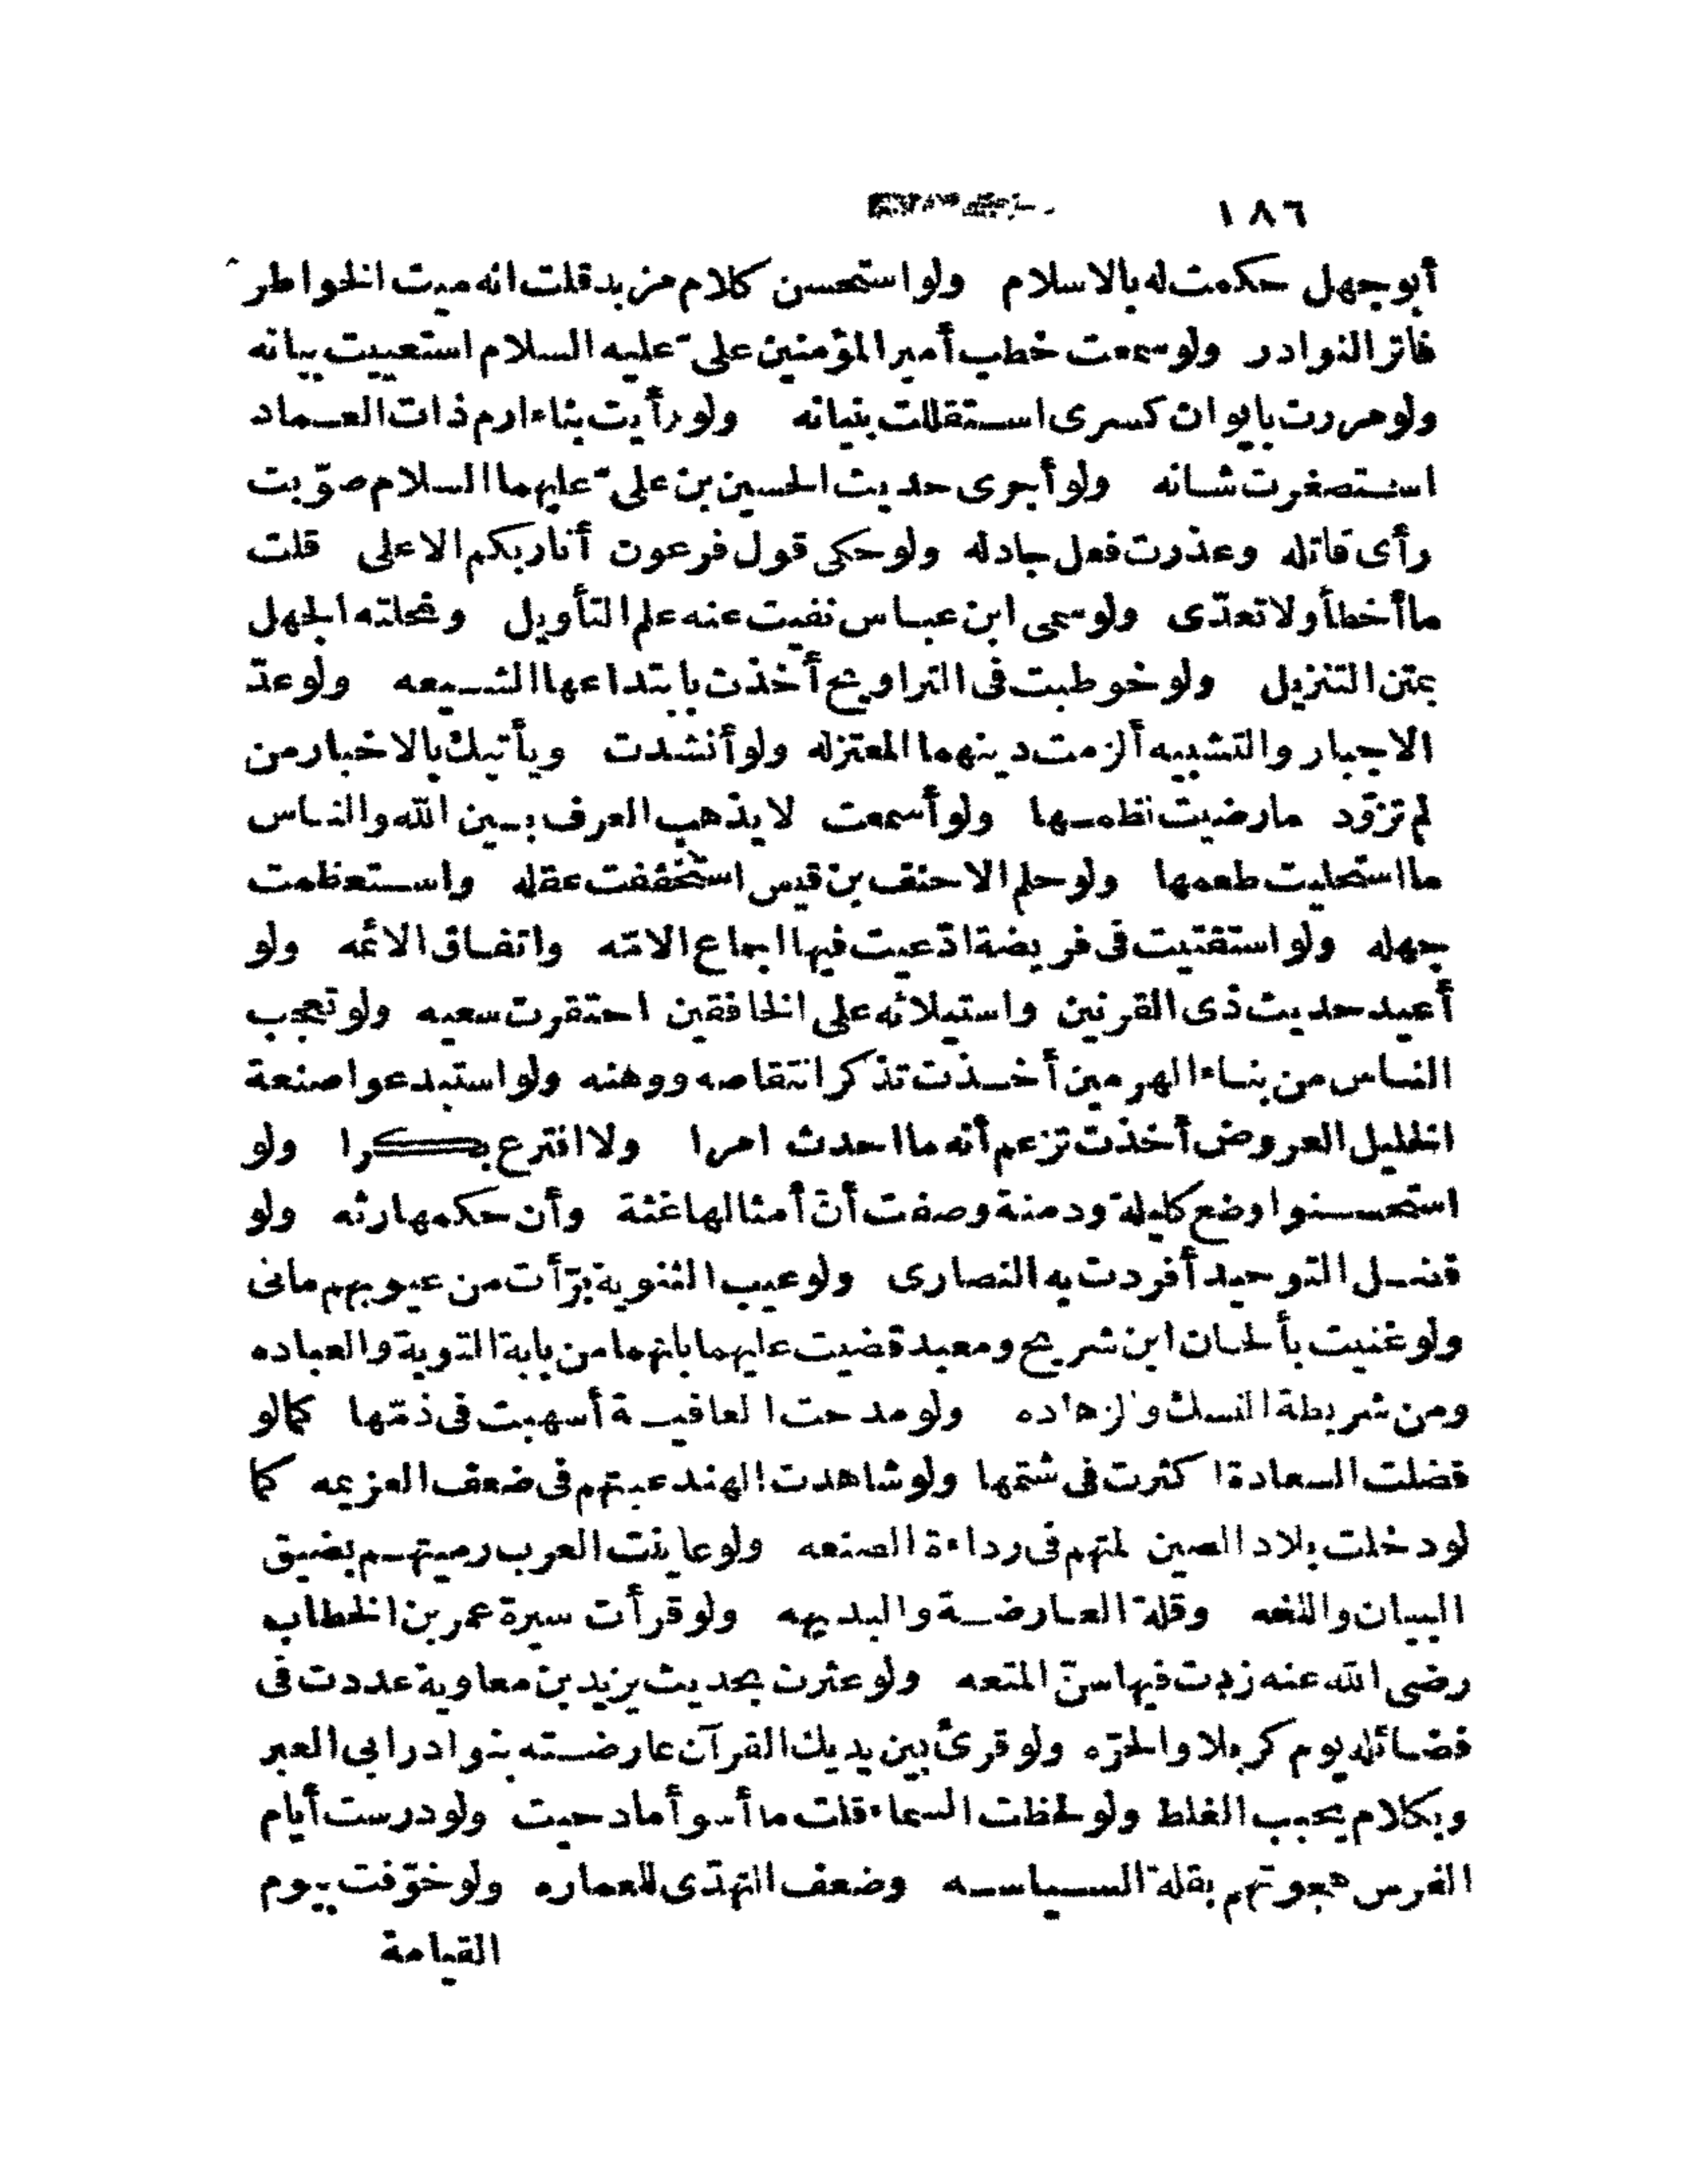 ١٨٦
أبوجهل حكمت له بالاسلام ولو استحسن كلام مزبد قلت انه ميت الخواطر
فاتر النوادر ولو سمعت خطب أمير المؤمنين علىّ عليه السلام استعييت بيانه
ولو مررت بايوان كسرى استقللت بنيانه ولو رأيت بناء ارم ذات العماد
استصغرت شانه ولو أجرى حديث الحسين بن علىّ عليهما السلام صوّبت
رأى قاتله وعذرت فعل جادله ولو حكى قول فرعون أنا ربكم الاعلى قلت
ما أخطأ ولا تعدّى ولو سمى ابن عباس نفيت عنه علم التأويل ونحلته الجهل
بمتن التنزيل ولو خوطبت فى التراويح أخذت بابتداعها الشيعه ولو عدّ
الاجبار والتشبيه ألزمت دينهما المعتزله ولو أنشدت ويأتيك بالاخبار من
لم تزوّد ما رضيت نظمها ولو أسمعت لا يذهب العرف بين الله والناس
ما استحليت طعمها ولو حلم الاحنف بن قيس استخففت عقله واستعظمت
جهله ولو استفتيت فى فريضة ادّعيت فيها اجماع الامّه واتفاق الائمه ولو
أعيد حديث ذى القرنين واستيلائه على الخافقين احتقرت سعيه ولو تعجب
الناس من بناء الهرمين أخذت تذكر انتقاصه ووهنه ولو استبدعوا صنعة
الخليل العروض أخذت تزعم أنه ما احدث امرا ولا افترع بكرا ولو
استحسنوا وضع كليلة ودمنة وصفت أنّ أمثالها غثة وأن حكمها رثه ولو
فضل التوحيد أفردت به النصارى ولو عيب الثنوية برّأت من عيوبهم مانى
ولو غنيت بألحان ابن شريح ومعبد قضيت عليهما بانهما من بابة التوبة والعباده
ومن شريطة النسك والزهاده ولو مدحت العافية أسهبت فى ذمّها كما لو
فضلت السعادة اكثرت فى شتمها ولو شاهدت الهند عبتهم فى ضعف العزيمه كما
لو دخلت بلاد الصين لمتهم فى رداءة الصنعه ولو عاينت العرب رميتهم بضيق
البيان واللغه وقلة العارضة والبديهه ولو قرأت سيرة عمر بن الخطاب
رضى الله عنه زدت فيها سنّ المتعه ولو عثرت بحديث يزيد بن معاوية عددت فى
فضائله يوم كربلا والحرّه ولو قرئ بين يديك القرآن عارضته بنوادر ابى العبر
وبكلام يحبب الغلط ولو لحظت السماء قلت ما أسوأ ما دحيت ولو درست أيام
الفرس هجوتهم بقلة السياسه وضعف التهدّى للعماره ولو خوّفت بيوم
القيامة